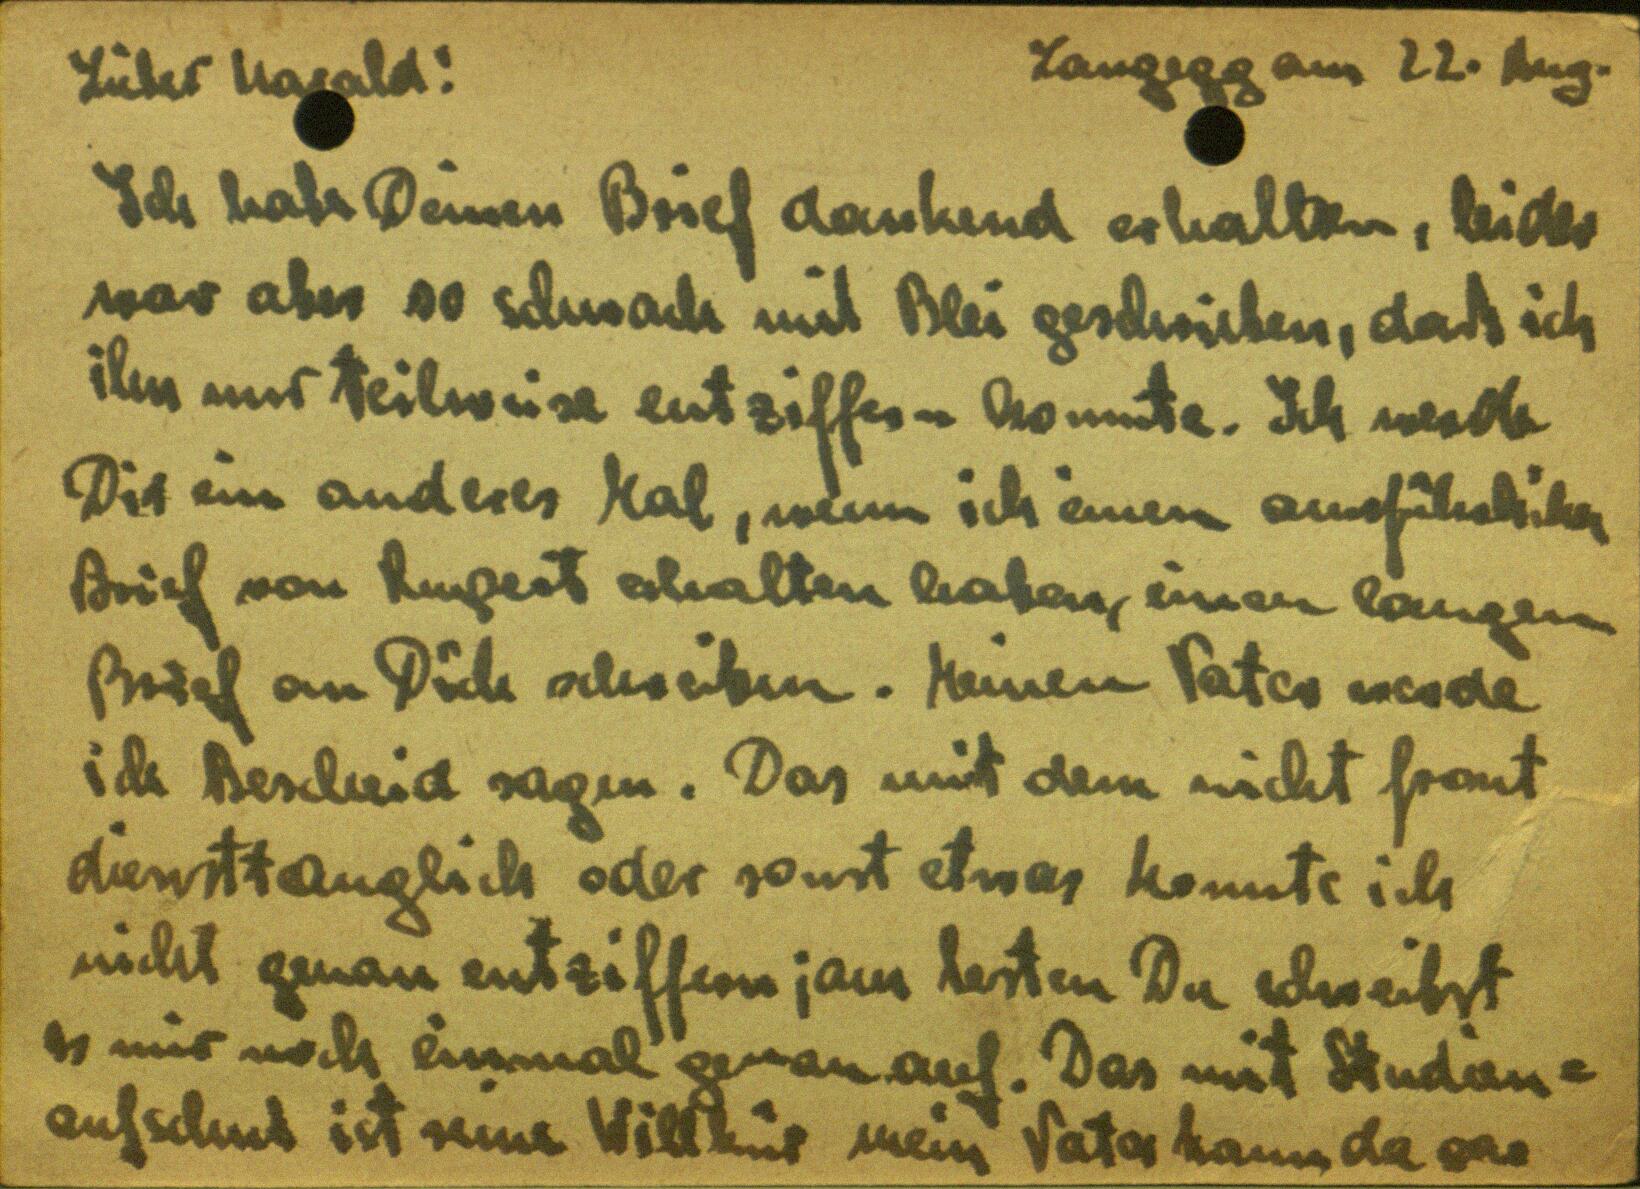 Lieber Harald! Langegg am 22. Aug.
Ich habe Deinen Brief dankend erhalten, leider
war aber so schwach mit Blei geschrieben, daß ich
ihn nur teilweise entziffern konnte. Ich werde
Dir ein anderes Mal, wenn ich einen ausführlichen
Brief von erhalten haben, einen langen
Brief an Dich schreiben. Meinen Vater werde
ich Bescheid sagen. Das mit dem nicht front
diensttauglich oder sonst etwas konnte ich
nicht genau entziffern; am besten Du schreibst
es mir noch einmal genau auf. Das mit Studien=
aufschub ist reine Willkür mein Vater kann da